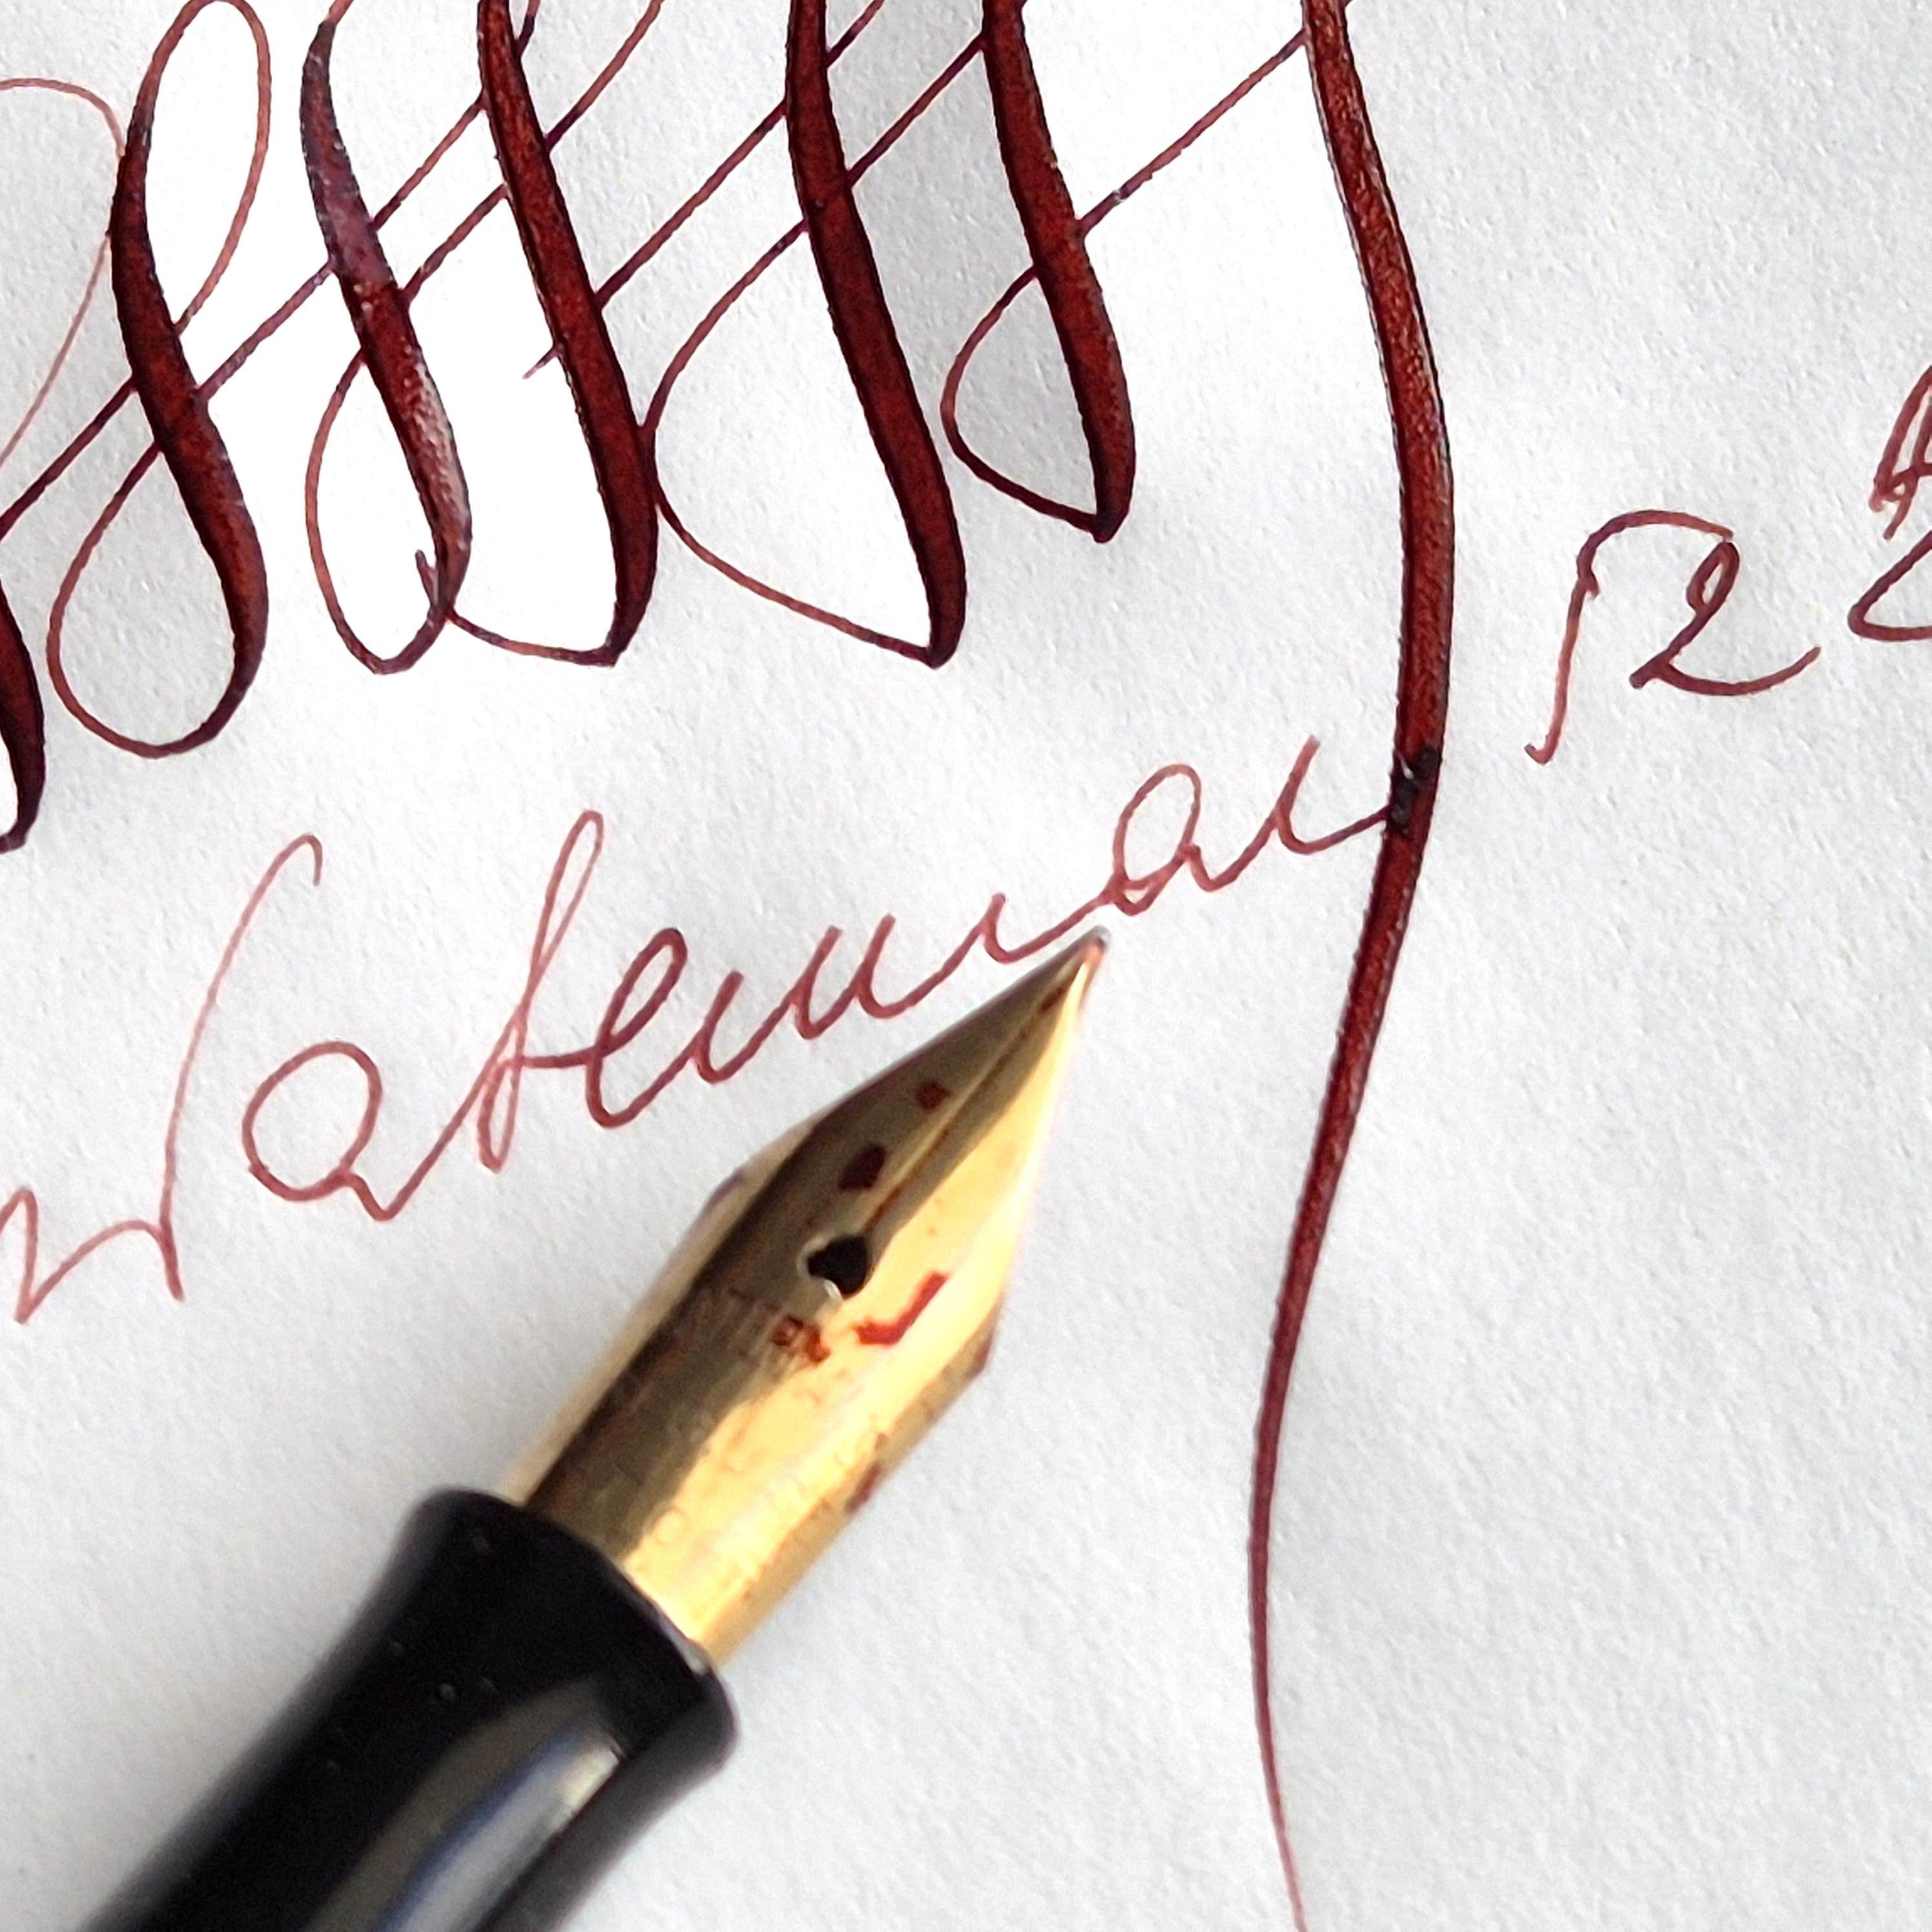 Waterman 52